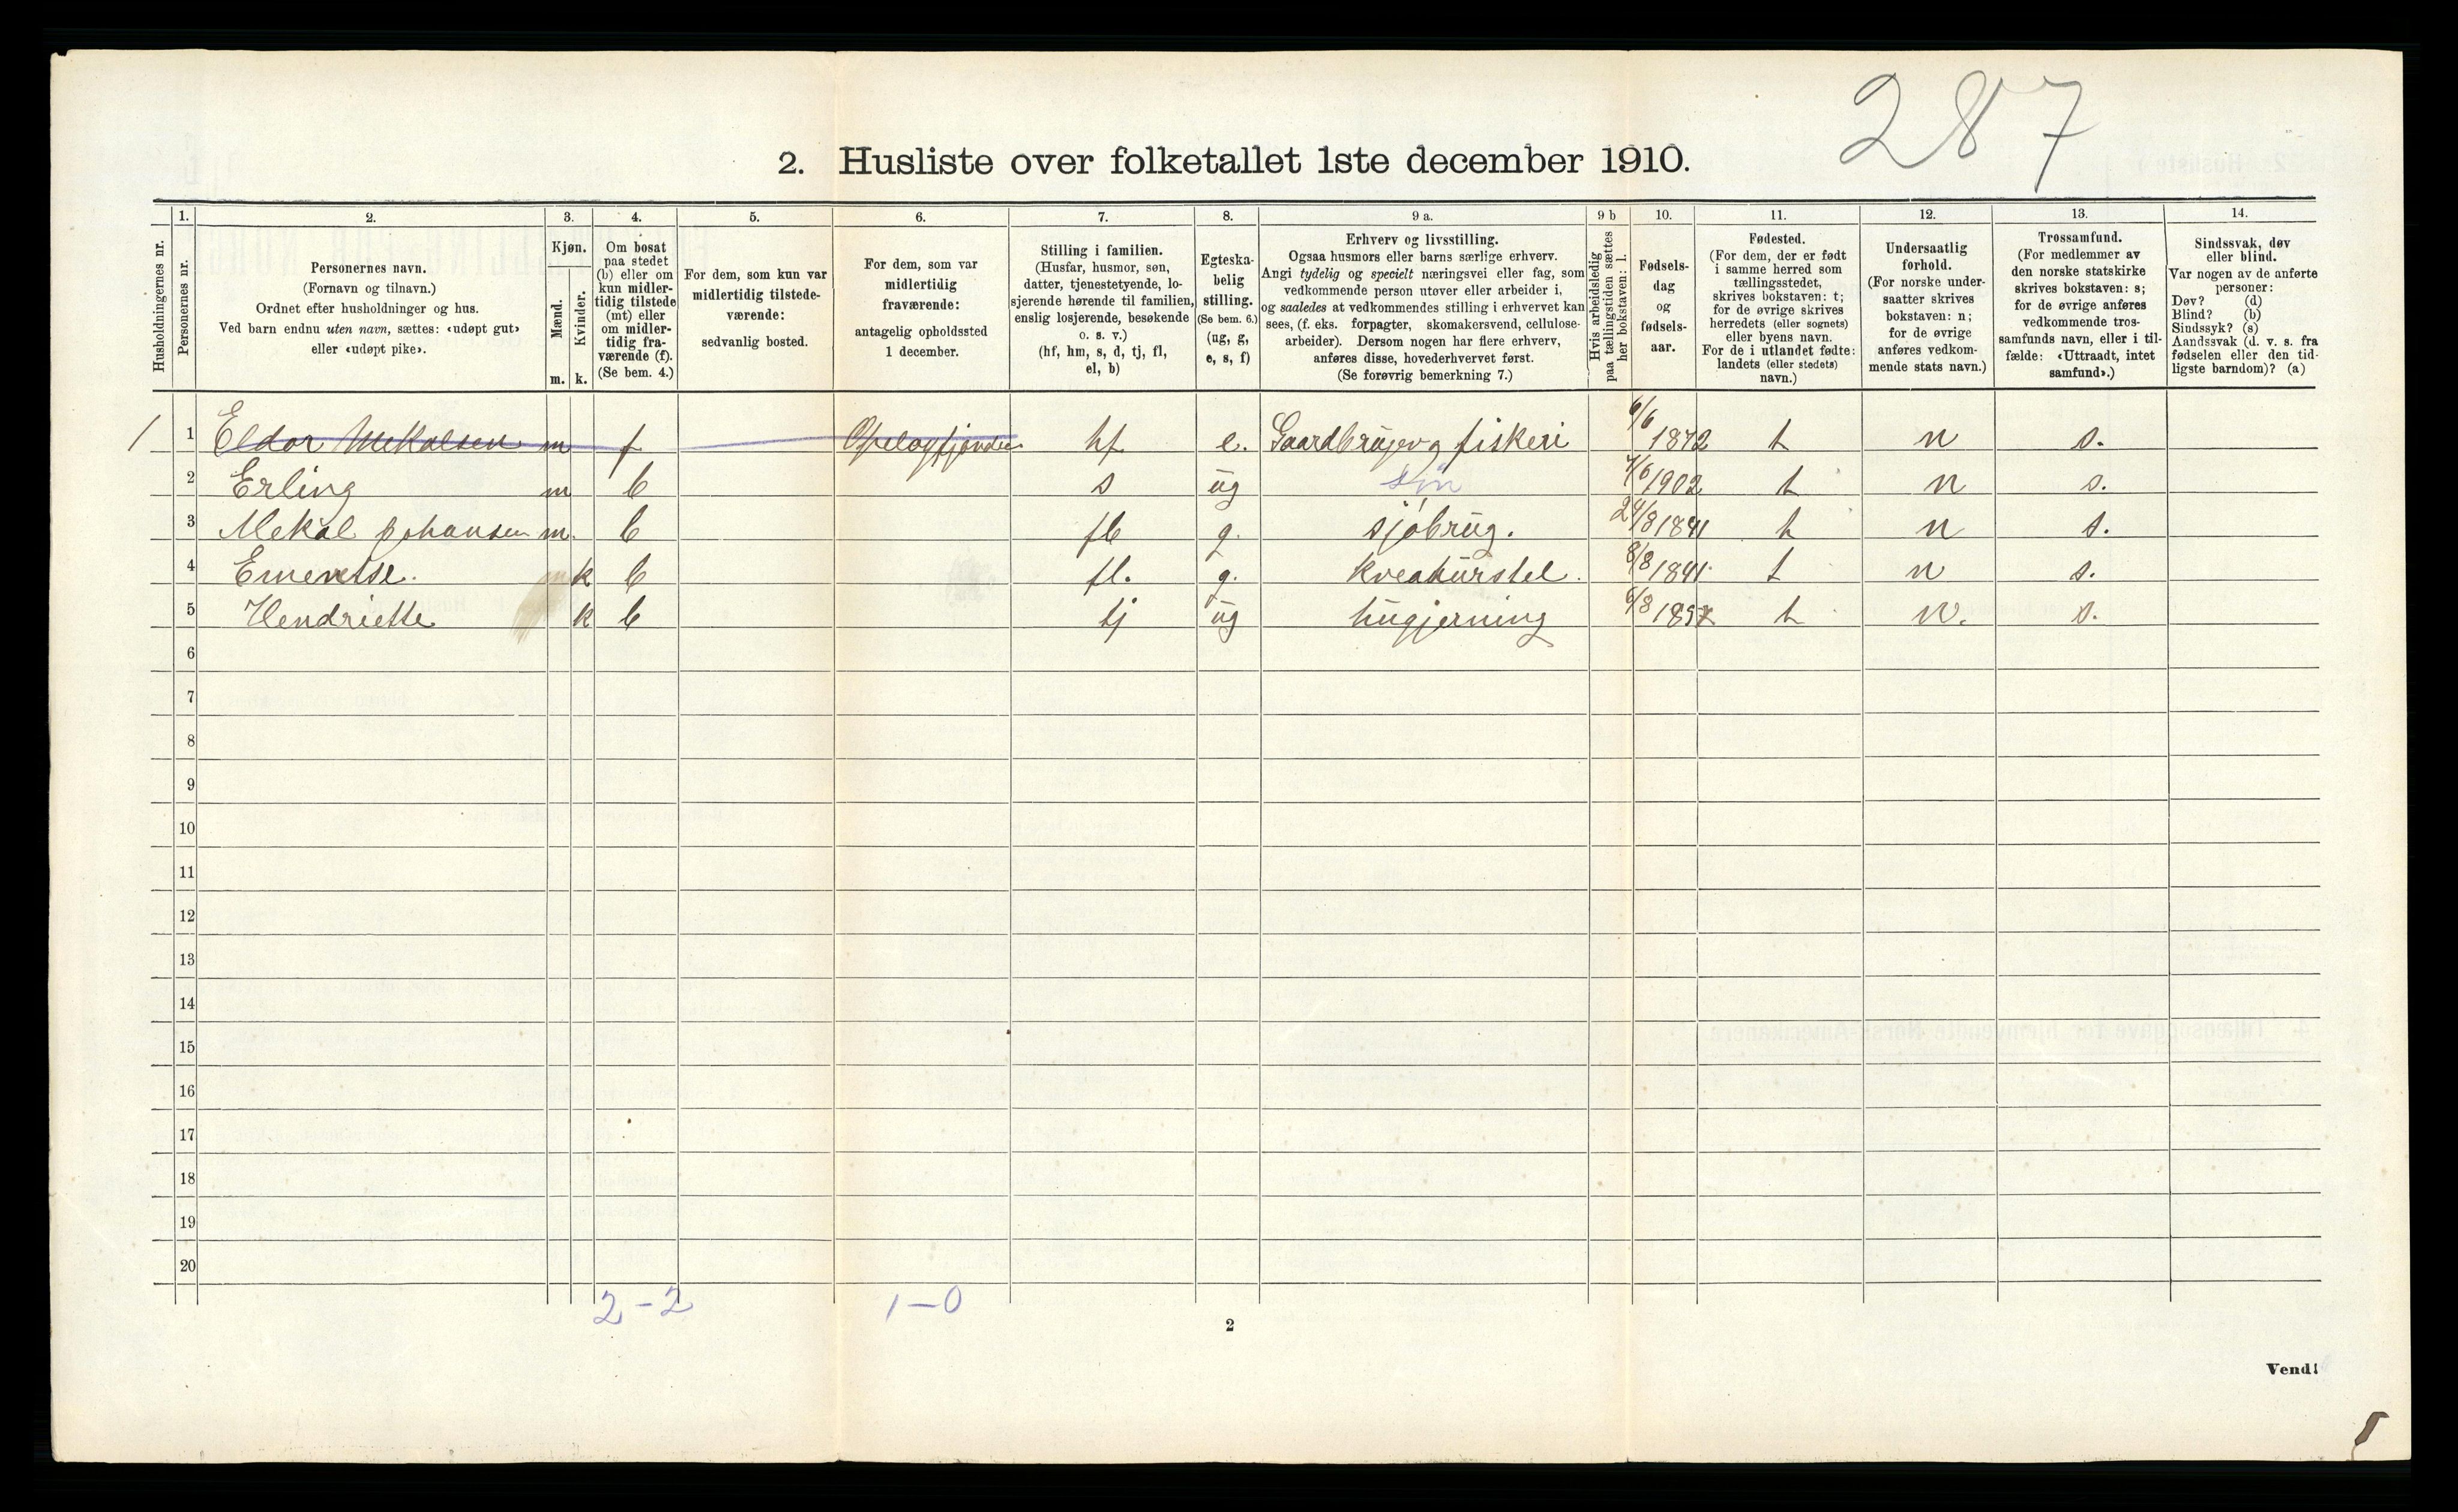 287
2. Husliste over folketallet 1ste december 1910.
Husholdningernes nr.
1.
Personernes nr.
2.
Personernes navn.
(Fornavn og tilnavn.)
Ordnet efter husholdninger og hus.
Ved barn endnu uten navn, sættes: «udøpt gut»
eller «udøpt pike».
3.
Kjøn.
Mænd.
Kvinder.
m. k.
4.
Om bosat
paa stedet
(b) eller om
kun midler-
tidig tilstede
(mt) eller
om midler-
tidig fra-
værende (f).
(Se bem. 4.)
5.
For dem, som kun var
midlertidig tilstede-
værende:
sedvanlig bosted.
6.
For dem, som var
midlertidig
fraværende:
antagelig opholdssted
1 december.
7.
Stilling i familien.
(Husfar, husmor, søn,
datter, tjenestetyende, lo-
sjerende hørende til familien,
enslig losjerende, besøkende
o. s. v.)
(hf, hm, s, d, tj, fl,
el, b)
8.
Egteska-
belig
stilling.
(Se bem. 6.)
(ug, g,
e, s, f)
9 a.
Erhverv og livsstilling.
Ogsaa husmors eller barns særlige erhverv.
Angi tydelig og specielt næringsvei eller fag, som
vedkommende person utøver eller arbeider i,
og saaledes at vedkommendes stilling i erhvervet kan
sees, (f. eks. forpagter, skomakersvend, cellulose-
arbeider). Dersom nogen har flere erhverv,
anføres disse, hovederhvervet først.
(Se forøvrig bemerkning 7.)
9 b
Hvis arbeidsledig
paa tællingstiden sættes
her bokstaven: l.
10.
Fødsels-
dag
og
fødsels-
aar.
11.
Fødested.
(For dem, der er født
i samme herred som
tællingsstedet,
skrives bokstaven: t;
for de øvrige skrives
herredets (eller sognets)
eller byens navn.
For de i utlandet fødte:
landets (eller stedets)
navn.)
12.
Undersaatlig
forhold.
(For norske under-
saatter skrives
bokstaven: n;
for de øvrige
anføres vedkom-
mende stats navn.)
13.
Trossamfund.
(For medlemmer av
den norske statskirke
skrives bokstaven: s;
for de øvrige anføres
vedkommende tros-
samfunds navn, eller i til-
fælde: «Uttraadt, intet
samfund».)
14.
Sindssvak, døv
eller blind.
Var nogen av de anførte
personer:
Døv? (d)
Blind? (b)
Sindssyk? (s)
Aandssvak (d. v. s. fra
fødselen eller den tid-
ligste barndom)? (a)
1 1 Eldor Mekalsen m f hf e. Gaardbruger og fiskeri 6/6 1872 t n s.
2 Erling m b s ug søn 1902 t n s.
3 Mekal Johansen m. b fl g. sjøbrug. 24/8 1841 t n s.
4 k b fl. g. 8/8 1841 t n s.
5 Hendriette k b tj ug husgjerning 6/8 t n. s.
6
7
8
9
10
11
12
13
14
15
16
17
18
19
20
2-2 1-0
2
Vend!